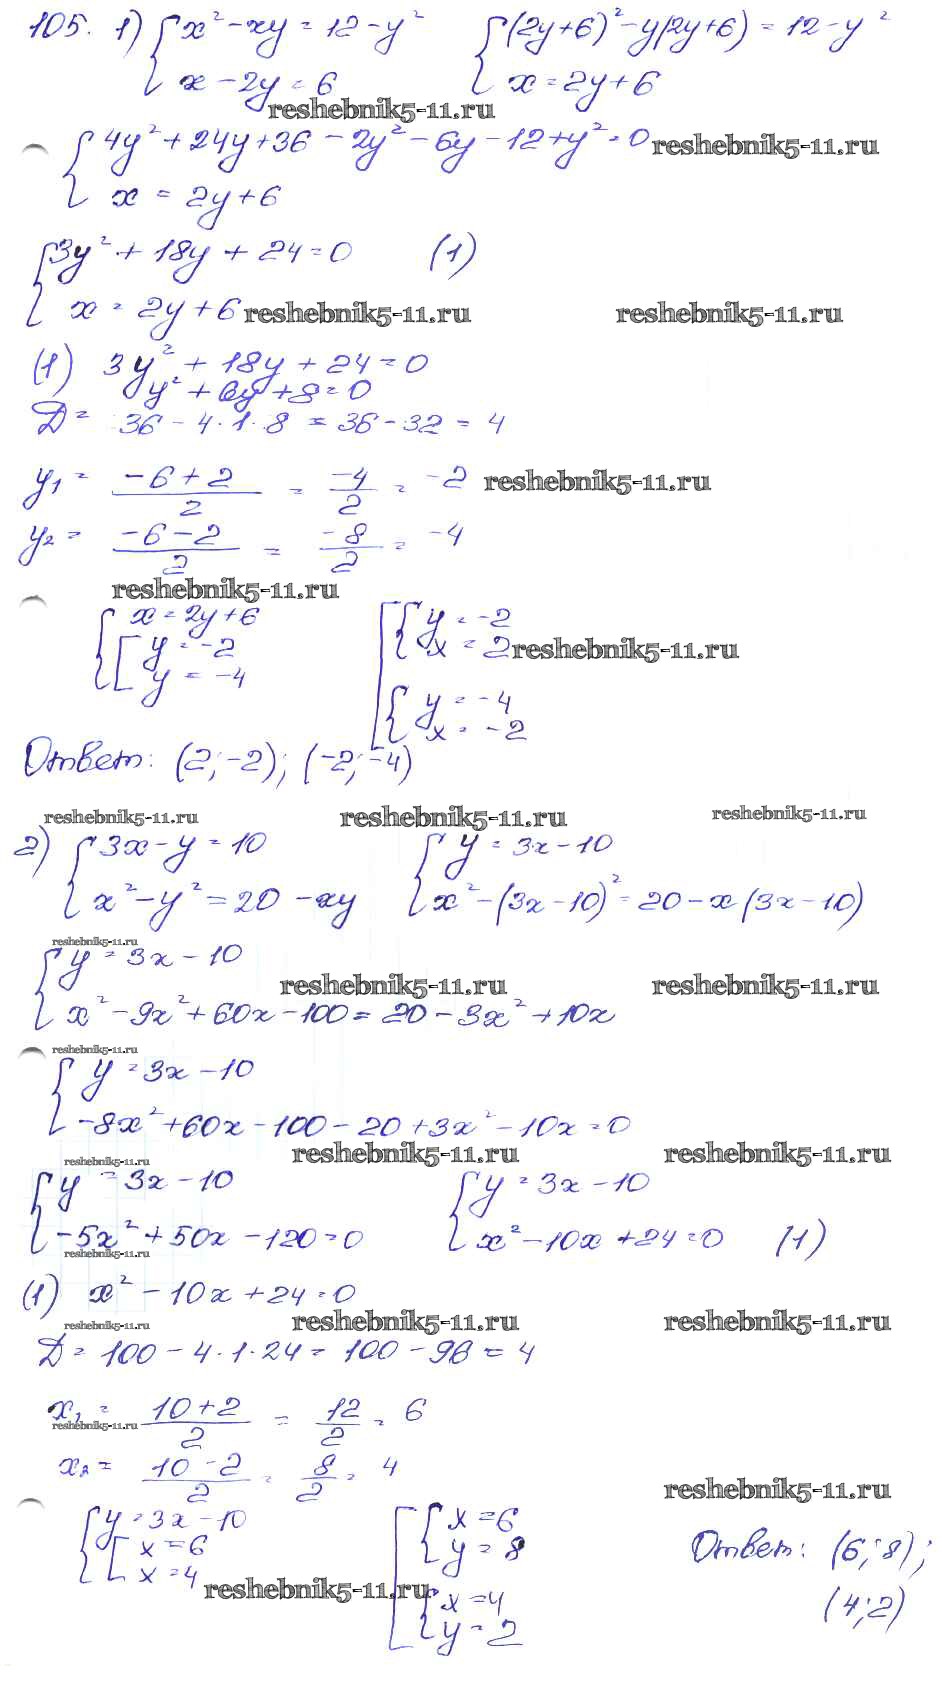 105. 1) { x² - xy = 12 - y² { (2y+6)² - y(2y+6) = 12 - y²
x - 2y = 6 x = 2y + 6
reshebnik5-11.ru
{ 4y² + 24y + 36 - 2y² - 6y - 12 + y² = 0 reshebnik5-11.ru
x = 2y + 6
{ 3y² + 18y + 24 = 0 (1)
x = 2y + 6 reshebnik5-11.ru reshebnik5-11.ru
(1) 3y² + 18y + 24 = 0
y² + 6y + 8 = 0
D = 36 - 4·1·8 = 36 - 32 = 4
y₁ = (-6+2)/2 = -4/2 = -2 reshebnik5-11.ru
y₂ = (-6-2)/2 = -8/2 = -4
reshebnik5-11.ru
{ x = 2y + 6 [ { y = -2
[ y = -2 x = 2 reshebnik5-11.ru
y = -4 { y = -4
x = -2
Ответ: (2; -2); (-2; -4)
reshebnik5-11.ru reshebnik5-11.ru reshebnik5-11.ru
2) { 3x - y = 10 { y = 3x - 10
x² - y² = 20 - xy x² - (3x - 10)² = 20 - x(3x - 10)
reshebnik5-11.ru
{ y = 3x - 10 reshebnik5-11.ru reshebnik5-11.ru
x² - 9x² + 60x - 100 = 20 - 3x² + 10x
reshebnik5-11.ru
{ y = 3x - 10
-8x² + 60x - 100 - 20 + 3x² - 10x = 0
reshebnik5-11.ru reshebnik5-11.ru reshebnik5-11.ru
{ y = 3x - 10 { y = 3x - 10
-5x² + 50x - 120 = 0 x² - 10x + 24 = 0 (1)
reshebnik5-11.ru
(1) x² - 10x + 24 = 0
reshebnik5-11.ru reshebnik5-11.ru reshebnik5-11.ru
D = 100 - 4·1·24 = 100 - 96 = 4
x₁ = (10+2)/2 = 12/2 = 6
reshebnik5-11.ru
x₂ = (10-2)/2 = 8/2 = 4
reshebnik5-11.ru
{ y = 3x - 10 [ { x = 6
[ x = 6 y = 8 Ответ: (6; 8);
x = 4 { x = 4 (4; 2)
reshebnik5-11.ru y = 2